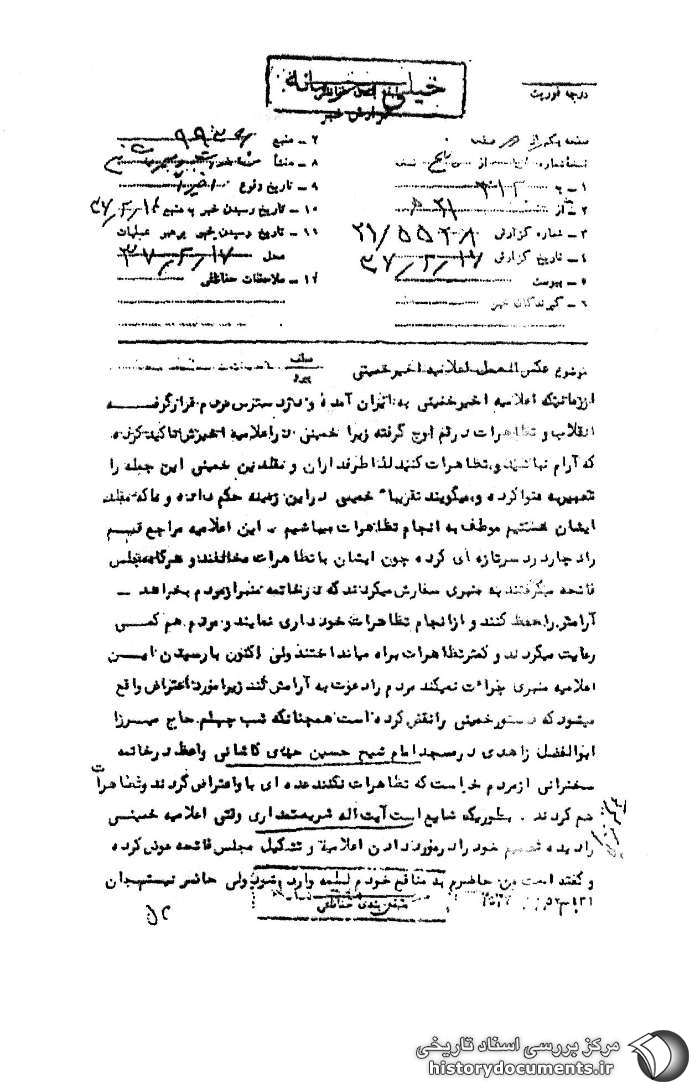 خیلی محرمانه
گزارش خبر
درجه فوریت
صفحه یکم از صفحه
نسخه شماره از پنج نسخه
۱ - به ۳۱۲
۲ - از ۲۱
۳ - شماره گزارش
۴ - تاریخ گزارش ۳۷/۲/۱۷
۵ - پیوست
۶ - گیرندگان خبر
۷ - منبع
۸ - منشأ
۹ - تاریخ وقوع اخیراً
۱۰ - تاریخ رسیدن خبر به منبع ۳۷/۲/۱۴
۱۱ - تاریخ رسیدن خبر برهبر عملیات
محل ۳۷/۲/۱۷
۱۲ - ملاحظات حفاظتی
موضوع عکس العمل اعلامیه اخیر خمینی
عطف
پیرو
اززمانیکه اعلامیه اخیر خمینی به تهران آمده و در دسترس مردم قرارگرفته
انقلاب و تظاهرات در قم اوج گرفته زیرا خمینی در اعلامیه اخیرش تاکید کرده
که آرام نباشید و تظاهرات کنید لذا طرفداران و مقلدین خمینی این جمله را
تعبیر به فتوا کرده و میگویند تقریباً خمینی در این زمینه حکم داده و ما که مقلد
ایشان هستیم موظف به انجام تظاهرات میباشیم . این اعلامیه مراجع قم
را دچار دردسر تازه ای کرده چون ایشان با تظاهرات مخالفند و هرگاه مجلس
فاتحه میگرفتند به منبری سفارش میکردند که در خاتمه منبر از مردم بخواهد -
آرامش را حفظ کنند و از انجام تظاهرات خودداری نمایند و مردم هم کمی
رعایت میکردند و کمتر تظاهرات براه میانداختند ولی اکنون با رسیدن این
اعلامیه منبری جرات نمیکند مردم را دعوت به آرامش کند زیرا مورد اعتراض واقع
میشود که دستور خمینی را نقض کرده است همچنانکه شب چهلم حاج میرزا
ابوالفضل زاهدی در مسجد امام شیخ حسین کاشانی واعظ در خاتمه
سخنرانی از مردم خواست که تظاهرات نکنند عده ای با و اعتراض کردند و تظاهرات
هم کردند . بطوریکه شایع است آیت اله شریعتمداری وقتی اعلامیه خمینی
را دیده تصمیم خود را در مورد دادن اعلامیه و تشکیل مجلس فاتحه عوض کرده
و گفته است من حاضرم به منافع خودم لطمه وارد بشود ولی حاضر نیستم جان
طبقه بندی حفاظتی
۵۲
مرکز بررسی اسناد تاریخی
historydocuments.ir